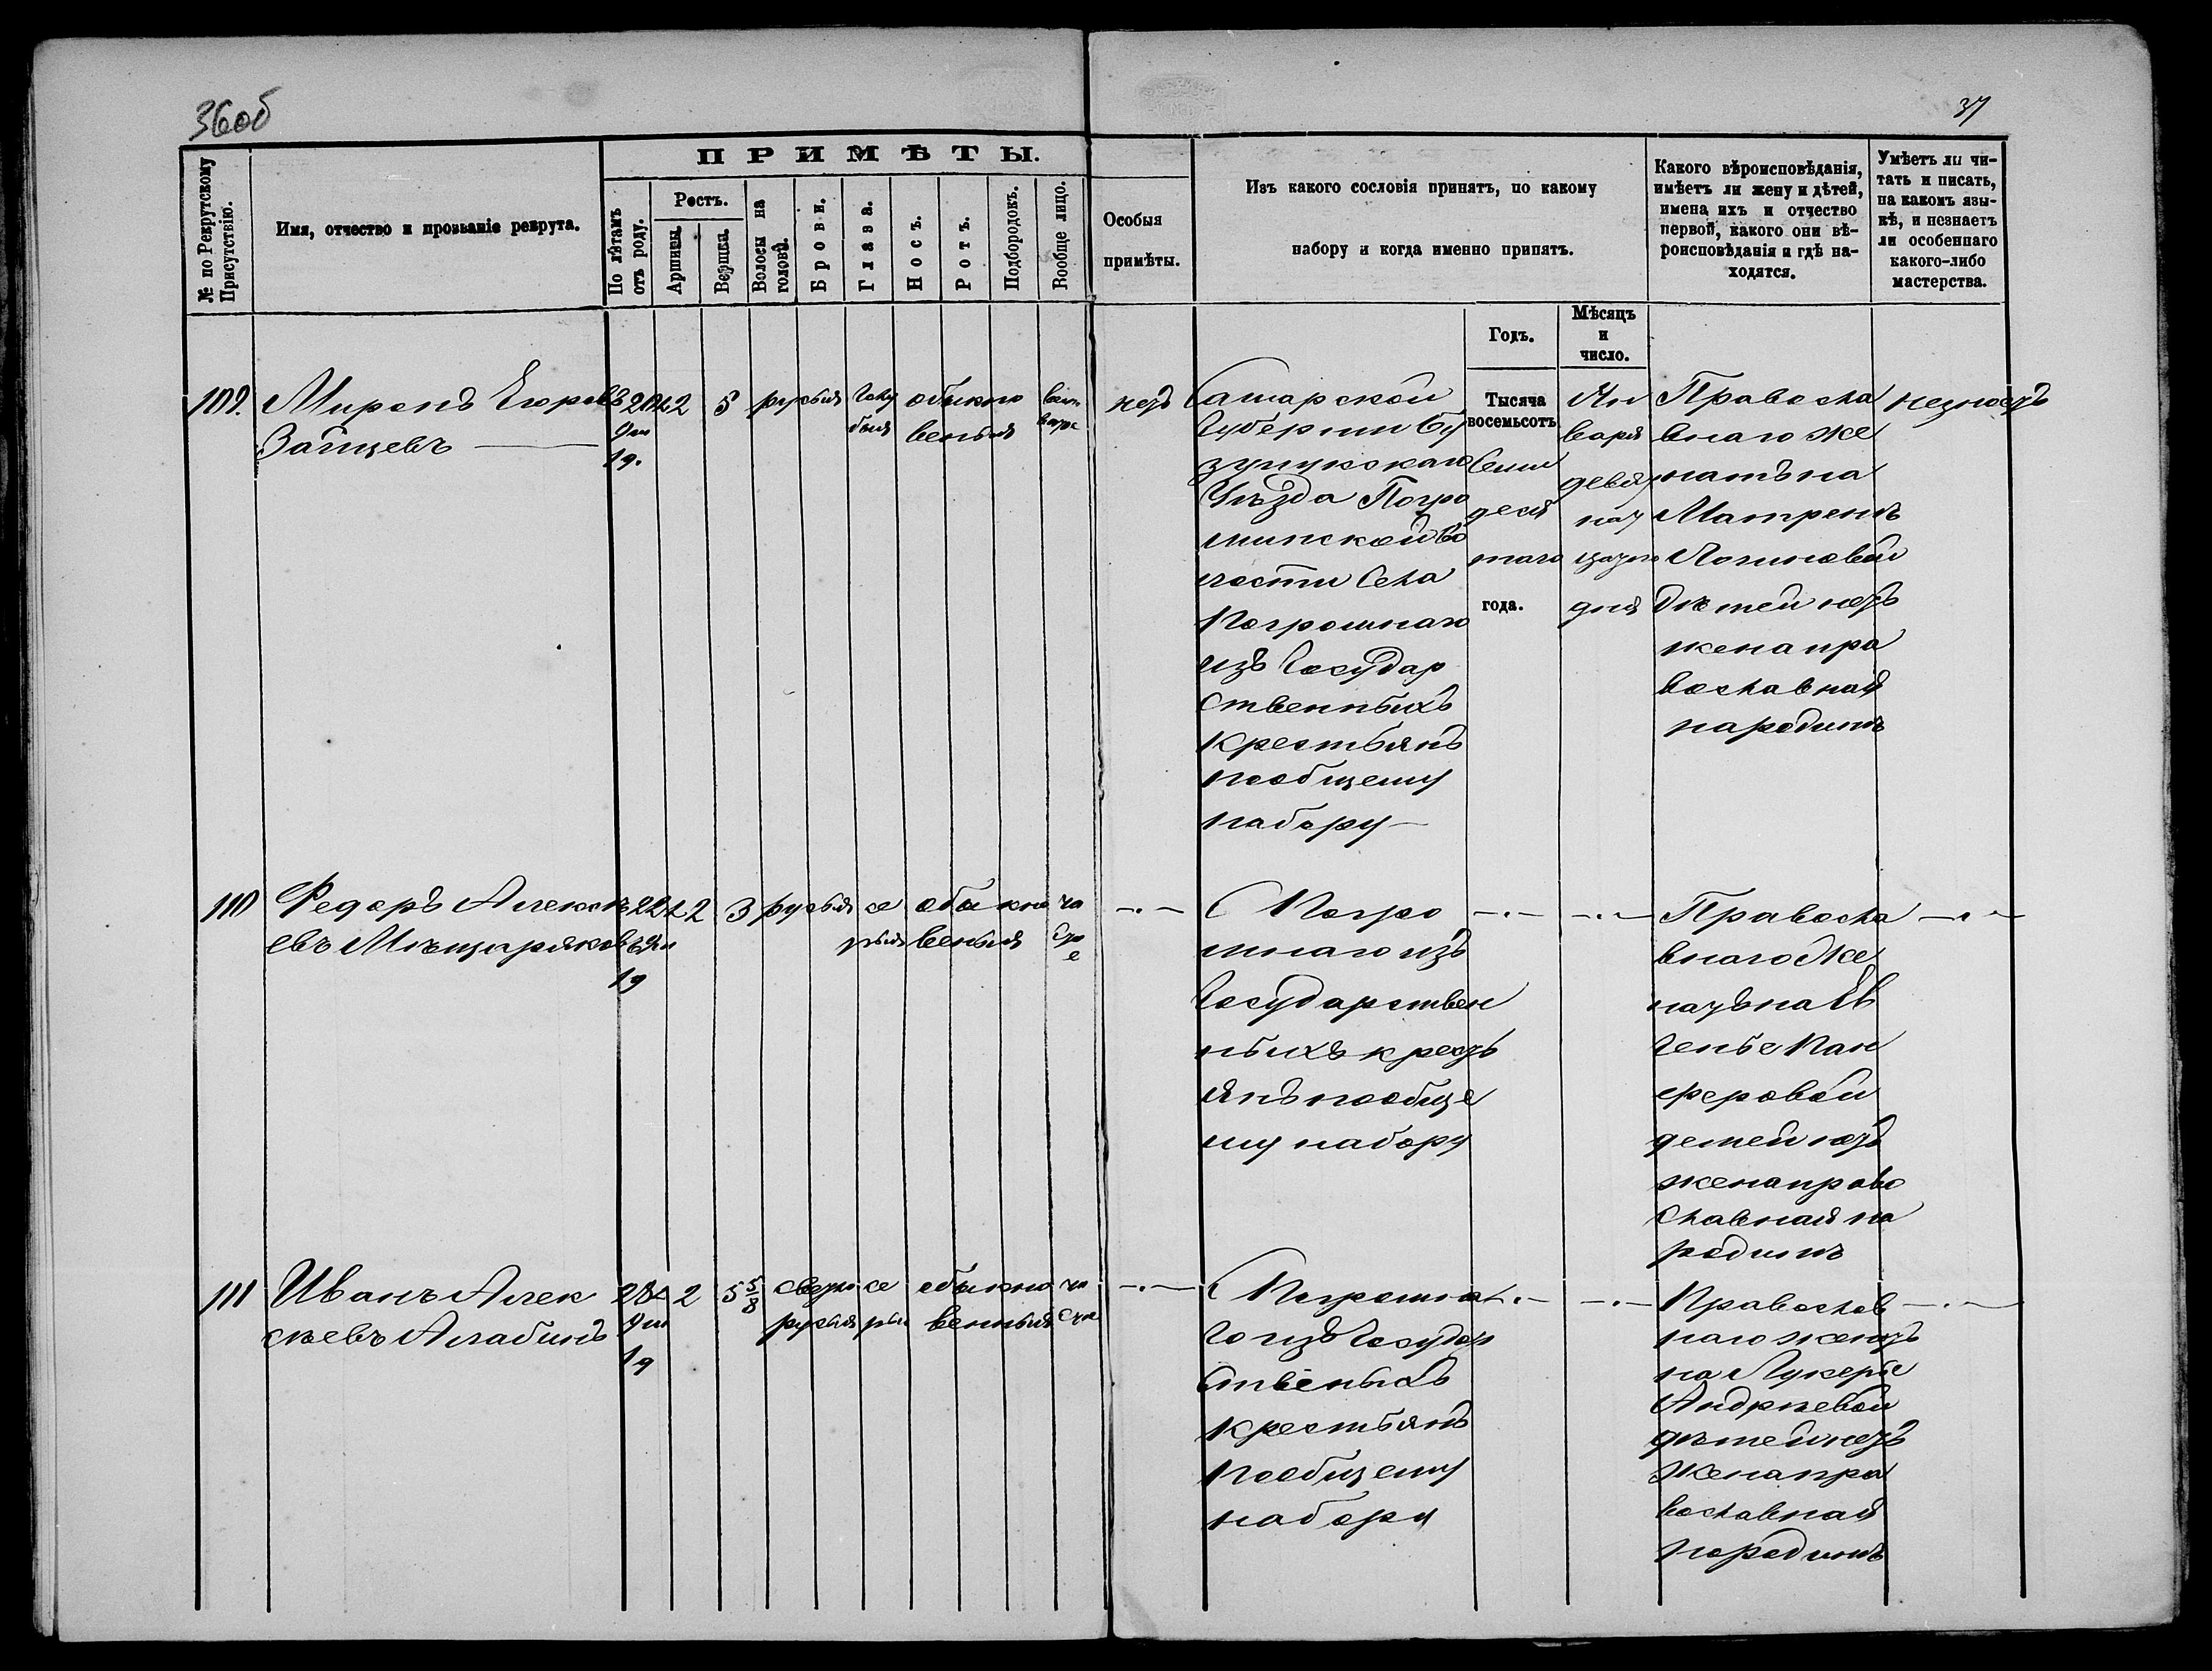 36об
37
ПРИМѢТЫ.
№ по Рекрутскому Присутствію.
Имя, отчество и прозваніе рекрута.
По лѣтамъ отъ роду.
Ростъ.
Аршины.
Вершки.
Волосы на головѣ.
Брови.
Глаза.
Носъ.
Ротъ.
Подбородокъ.
Вообще лицо.
Особыя
примѣты.
Изъ какого сословія принятъ, по какому
набору и когда именно принятъ.
Годъ.
Мѣсяцъ
и
число.
Какого вѣроисповѣданія,
имѣетъ ли жену и дѣтей,
имена ихъ и отчество
первой, какого они вѣ-
роисповѣданія и гдѣ на-
ходятся.
Умѣетъ ли чи-
тать и писать,
на какомъ язы-
кѣ, и незнаетъ
ли особеннаго
какого-либо
мастерства.
109.
Миронъ Егоровъ
Зайцевъ
2
5
русыя
голу
быя
обыкно
венныя
нетъ
Самарской
Губерніи Бу
зулукскаго
Уѣзда Погро
минской Во
лости Села
Погромнаго
изъ Государ
ственныхъ
крестьянъ
пообщему
набору
Тысяча
восемьсотъ
Семи
деся
таго
года.
Ян
варя
девят
над
цатаго
дня
Правосла
внаго же
натъ на
Матренѣ
Логиновой
Дѣтей нетъ
жена пра
вославная
народинѣ
незнаетъ
110
Федоръ Алексѣ
евъ Мѣщиряковъ
22
2
3
русыя
се
рыя
обыкно
венныя
чи
стое
С Погро
мнаго изъ
Государствен
ныхъ крест
янъ пообще
му набору
Правосла
внаго Же
натъ на Ев
генье Пан
феровой
детей нетъ
жена право
славная на
родинѣ
111
Иванъ Алек
сѣевъ Алабинъ
2
5 5/8
светло
русыя
се
рыя
обыкно
венныя
чи
стое
С Погромна
го изъ Государ
ственыхъ
Крестьянъ
пообщему
набору
Православ
наго женатъ
на Лукерье
Андрѣевой
дѣтей нетъ
Жена пра
вославная
народинѣ